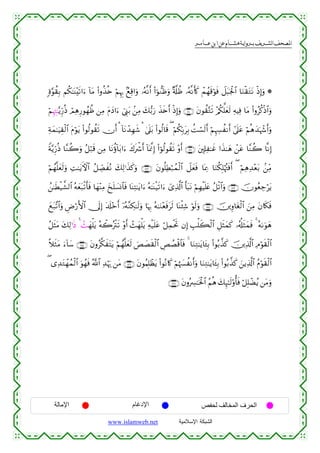 المصحف الشريف برواية هشام عن ابن عامر
* وَإِذْ نَتَقْنَا ٱلْجَبَلَ فَوْقَهُمْ كَأَنَّهُۥ ظُلَّةٌ وَظَنُّوٓا۟ أَنَّهُۥ وَاقِعٌۢ بِهِمْ خُذُوا۟ مَآ ءَاتَيْنَٰكُم بِقُوَّةٍ
وَٱذْكُرُوا۟ مَا فِيهِ لَعَلَّكُمْ تَتَّقُونَ ۝ وَإِذْ أَخَذَ رَبُّكَ مِنۢ بَنِىٓ ءَادَمَ مِن ظُهُورِهِمْ ذُرِّيَّٰتِهِمْ
وَأَشْهَدَهُمْ عَلَىٰٓ أَنفُسِهِمْ أَلَسْتُ بِرَبِّكُمْ ۖ قَالُوا۟ بَلَىٰ ۛ شَهِدْنَآ ۛ أَن تَقُولُوا۟ يَوْمَ ٱلْقِيَٰمَةِ
إِنَّا كُنَّا عَنْ هَٰذَا غَٰفِلِينَ ۝ أَوْ تَقُولُوٓا۟ إِنَّمَآ أَشْرَكَ ءَابَآؤُنَا مِن قَبْلُ وَكُنَّا ذُرِّيَّةً
مِّنۢ بَعْدِهِمْ ۖ أَفَتُهْلِكُنَا بِمَا فَعَلَ ٱلْمُبْطِلُونَ ۝ وَكَذَٰلِكَ نُفَصِّلُ ٱلْءَايَٰتِ وَلَعَلَّهُمْ
يَرْجِعُونَ ۝ وَٱتْلُ عَلَيْهِمْ نَبَأَ ٱلَّذِىٓ ءَاتَيْنَٰهُ ءَايَٰتِنَا فَٱنسَلَخَ مِنْهَا فَأَتْبَعَهُ ٱلشَّيْطَٰنُ
فَكَانَ مِنَ ٱلْغَاوِينَ ۝ وَلَوْ شِئْنَا لَرَفَعْنَٰهُ بِهَا وَلَٰكِنَّهُۥٓ أَخْلَدَ إِلَى ٱلْأَرْضِ وَٱتَّبَعَ
هَوَىٰهُ ۚ فَمَثَلُهُۥ كَمَثَلِ ٱلْكَلْبِ إِن تَحْمِلْ عَلَيْهِ يَلْهَثْ أَوْ تَتْرُكْهُ يَلْهَث ۚ ذَّٰلِكَ مَثَلُ
ٱلْقَوْمِ ٱلَّذِينَ كَذَّبُوا۟ بِـَٔايَٰتِنَا ۚ فَٱقْصُصِ ٱلْقَصَصَ لَعَلَّهُمْ يَتَفَكَّرُونَ ۝ سَآءَ مَثَلًا
ٱلْقَوْمُ ٱلَّذِينَ كَذَّبُوا۟ بِـَٔايَٰتِنَا وَأَنفُسَهُمْ كَانُوا۟ يَظْلِمُونَ ۝ مَن يَهْدِ ٱللَّهُ فَهُوَ ٱلْمُهْتَدِى ۖ
وَمَن يُضْلِلْ فَأُو۟لَٰٓئِكَ هُمُ ٱلْخَٰسِرُونَ ۝
الحرف المخالف لحفص الإدغام الإمالة
الشبكة الإسلامية www.islamweb.net